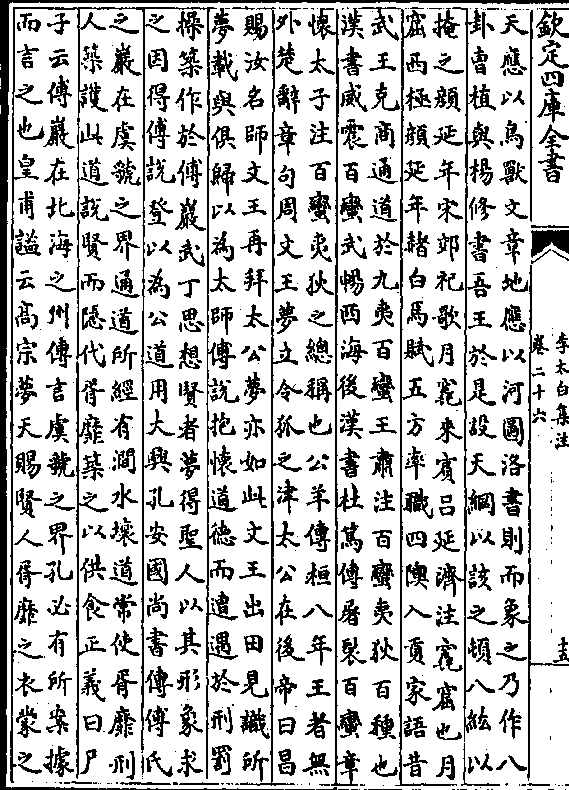 欽定四庫全書
李太白集注
卷二十六
十五
天應以鳥獸文章地應以河圖洛書則而象之乃作八
卦曹植與楊修書吾王於是設天綱以該之頓八紘以
掩之顔延年宋郊祀歌月竁來賓吕延濟注竁窟也月
窟西極顔延年赭白馬賦五方率職四隩入貢家語昔
武王克商通道於九夷百蠻王肅注百蠻夷狄百種也
漢書威震百蠻武暢西海後漢書杜篤傳屠裂百蠻章
懷太子注百蠻夷狄之總稱也公羊傳桓八年王者無
外楚辭章句周文王夢立令狐之津太公在後帝曰昌
賜汝名師文王再拜太公夢亦如此文王出田見識所
夢載與俱歸以為太師傅説抱懷道德而遭遇於刑罰
操築作於傅巖武丁思想賢者夢得聖人以其形象求
之因得傅説登以為公道用大興孔安國尚書傳傅氏
之巖在虞虢之界通道所經有澗水壞道常使胥靡刑
人築護此道説賢而隱代胥靡築之以供食正義曰尸
子云傅巖在北海之州傳言虞虢之界孔必有所案據
而言之也皇甫謐云高宗夢天賜賢人胥靡之衣蒙之